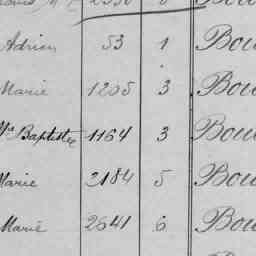 Adrien 53 1 Bou
Marie 1205 3 Bou
Baptiste 1164 3 Bou
Marie 2184 5 Bou
Marie 2641 6 Bou